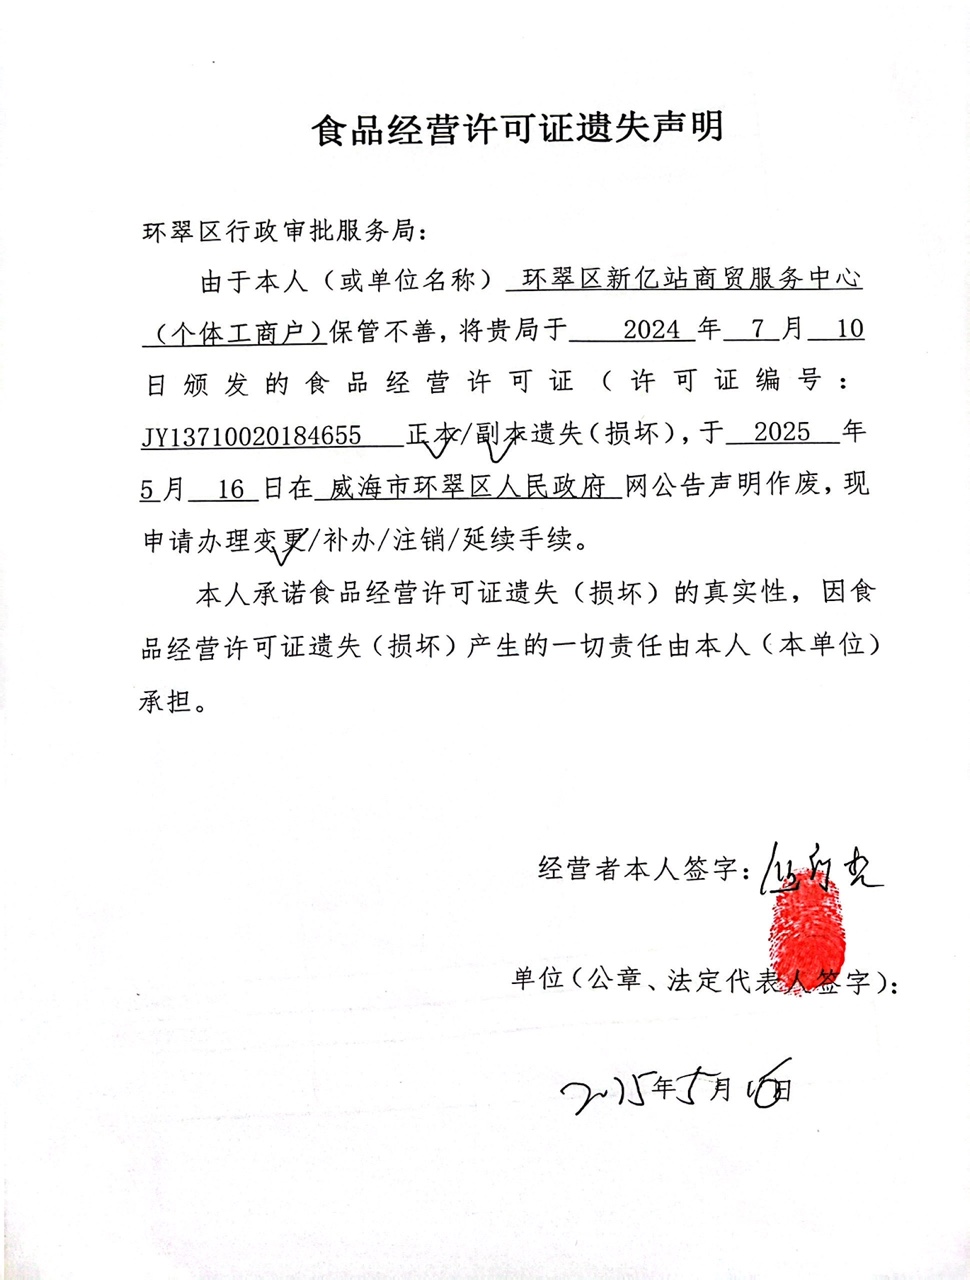 食品经营许可证遗失声明
环翠区行政审批服务局：
由于本人（或单位名称） 环翠区新亿站商贸服务中心
（个体工商户）保管不善，将贵局于 2024 年 7 月 10
日颁发的食品经营许可证（许可证编号：
JY13710020184655 正本/副本遗失（损坏），于 2025 年
5 月 16 日在 威海市环翠区人民政府 网公告声明作废，现
申请办理变更/补办/注销/延续手续。
本人承诺食品经营许可证遗失（损坏）的真实性，因食
品经营许可证遗失（损坏）产生的一切责任由本人（本单位）
承担。
经营者本人签字：
单位（公章、法定代表人签字）：
2025年5月16日